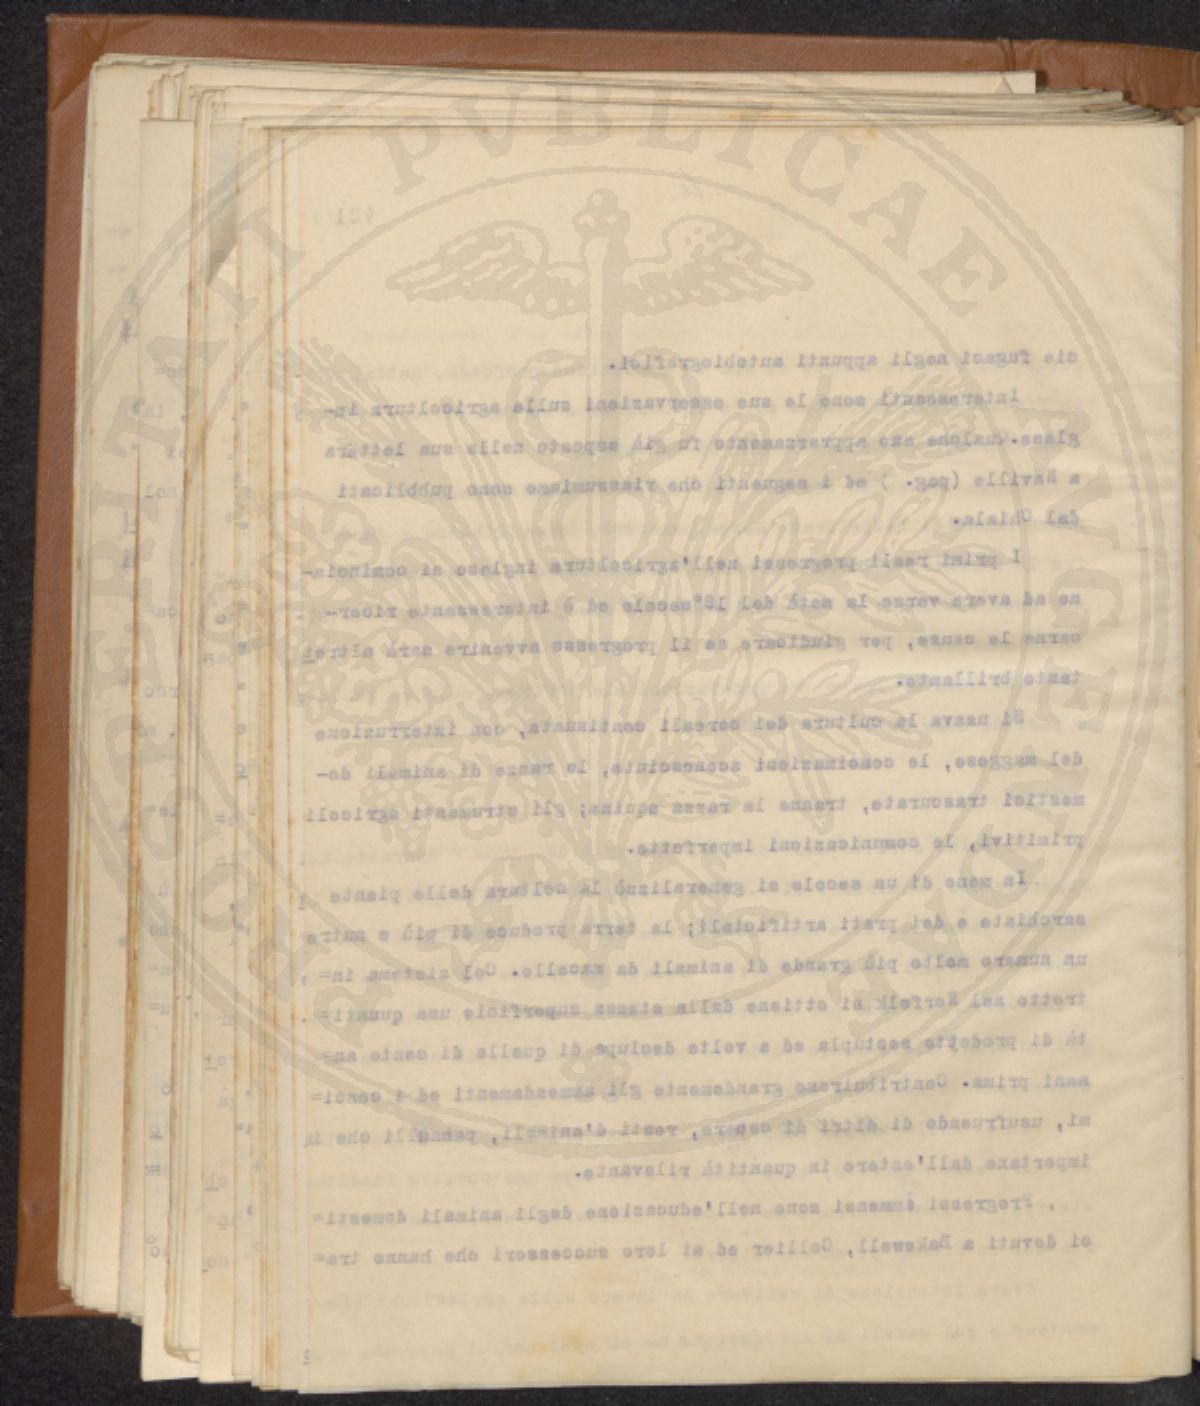 PROSPERITATI PVBLICAE AVGENDAE
421
cie fugaci negli appunti autobiografici.
Interessanti sono le sue osservazioni sulle agricoltura in-
glese. Qualche suo apprezzamento fu già esposto nella sua lettera
a Naville (pag. ) ed i seguenti che riassumiamo sono pubblicati
dal Chiala.
I primi reali progressi nell'agricoltura inglese si comincia-
no ad avere verso la metà del 18° secolo ed è interessante ricer-
carne le cause, per giudicare se il progresso avvenire sarà altret
tanto brillante.
Si usava la cultura dei cereali continuata, con interruzione
del maggese, le concimazioni sconosciute, le razze di animali do-
mestici trascurate, tranne la razza equina; gli strumenti agricoli
primitivi, le comunicazioni imperfette.
In meno di un secolo si generalizzò la coltura delle piante
sarchiate e dei prati artificiali; la terra produce di più e nutre
un numero molto più grande di animali da macello. Col sistema in=
trotto nel Norfolk si ottiene dalla stessa superficie una quanti=
tà di prodotto sestupla ed a volte declupe di quella di cento an=
nani prima. Contribuirono grandemente gli ammendamenti ed i conci=
mi, usufruendo di di cenere, resti d'animali, pannelli che
importano dall'estero in quantità rilevante.
Progressi immensi sono nell'educazione degli animali domesti=
ci dovuti a Bakewell, Collier ed ai loro successori che hanno tra=